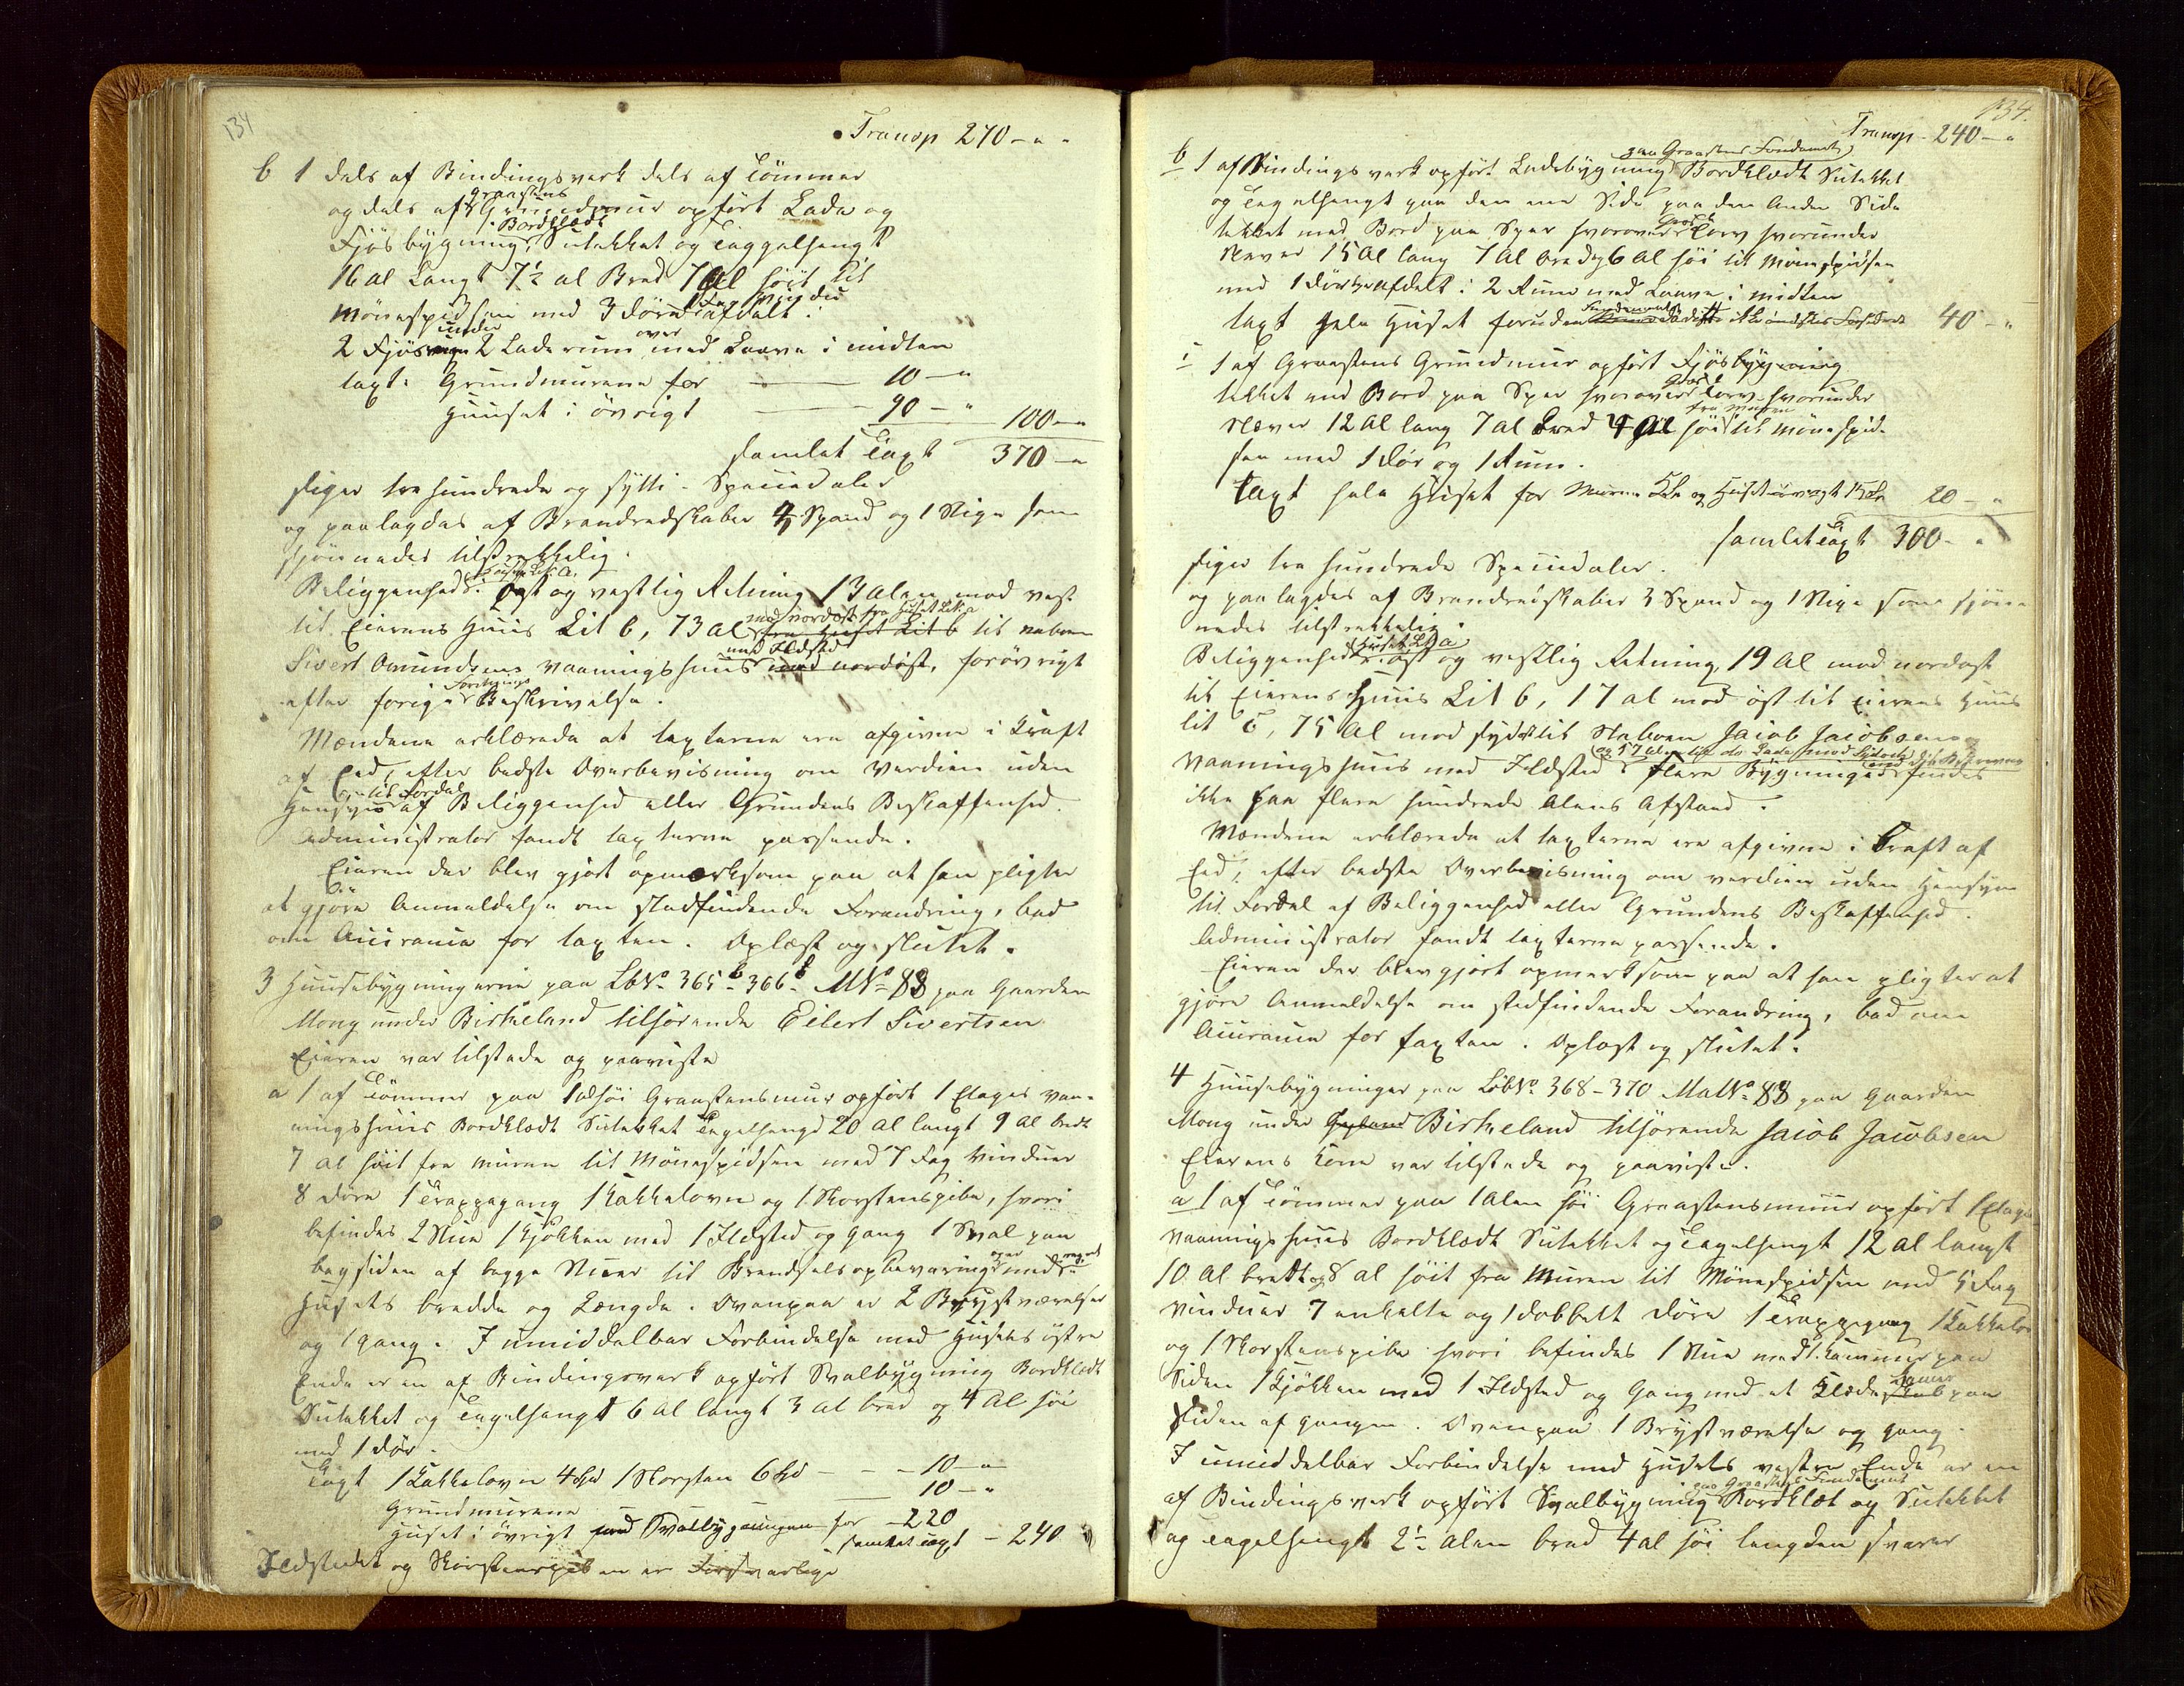 134
Transp 270 – " "
b 1 dels af Bindingsverk dels af Tømmer
og dels af Graastens Grundmuur opført Lade og
Fjøsbygning, Bordklædt Sutekket og Taggelhengt
16 al Langt 7½ al Bred 7 Al høit til
Mønespidsen med 3 Døre 1 Fag Vindu afdelt i
2 Fjøs under 2 Laderum over med Laave i midten
taxt: Grundmurene for — 10 – "
Huuset i øvrigt — 90 – " 100 – "
samlet Taxt 370 – "
siger tre hundrede og sytti Speciedaler
og paalagdes af Brandredskaber 4 Spand og 1 Stige som
skjønnedes tilstrækkelig.
Beliggenhed: Huset Lit a. Øst og vestlig Retning 13 Alen mod vest
til Eierens Huus Lit b, 73 al mod nordøst fra Huset Lit a fra Huset Lit b til naboen
Sivert Omundsens vaaningshuus med Ildsted mod nordøst, forøvrigt
efter forige Forretnings Beskrivelse.
Mændene erklærede at taxterne ere afgivne i Kraft
af Eed, efter bedste Overbevisning om Verdien uden
Hensyn til Fordel af Beliggenhed eller Grundens Beskaffenhed.
Administrator fandt taxterne passende.
Eieren der blev gjort opmerksom paa at han pligter
at gjøre Anmeldelse om stedfindende Forandring, bad
om Assurance for taxten. Oplæst og sluttet.
3 Huusebygningerne paa LbNo 365b 366b MNo 88 paa Gaarden
Mong under Birkeland tilhørende Eilert Sivertsen
Eieren var tilstede og paaviste
a 1 af Tømmer paa 1 al høi Graastensmuur opført 1 Etages vaa-
ningshuus Bordklædt Sutekket Tagelhengt 20 al langt 9 al bredt
7 al høit fra muren til Mønespidsen med 7 Fag Vinduer
8 Døre 1 Trappegang 1 Kakkelovn og 1 Skorstenspibe, hvori
befindes 2 Stuer 1 Kjøkken med 1 Ildsted og Gang 1 Sval paa
bagsiden af begge Stuer til Brendselsopbevaring med
Husets bredde og Længde. Ovenpaa er 2 Brystværelser
og 1 gang. I umiddelbar Forbindelse med Husets østre
Ende er en af Bindingsverk opført Svalbygning Bordklædt
Sutekket og Tagelhengt 6 al langt 3 al bred og 4 al høi
med 1 Dør.
Taxt 1 Kakkelovn 4 Spd 1 Skorsten 6 Spd – – 10 – "
Grundmurene — 10 – "
Huset i øvrigt med Svalbygningen for – 220
samlet taxt – 240
Ildstedet og Skorstenspiben er Forsvarlige
134.
Transp – 240 – "
b 1 af Bindingsverk opført Ladebygning paa Graastens Fundament Bordklædt Sutekket
og Tagelhengt paa den ene Side paa den Anden Side
tekket med Bord paa Sper hvorover Torv hvorunder
Never 15 Al lang 7 Al bred og 6 Al høi til Mønespidsen
med 1 Dør afdelt i 2 Rum med Laave i midten
taxt hele Huset foruden Fundamentet 40 – "
c 1 af Graastens Grundmuur opført Fjøsbygning
tekket med Bord paa Sper hvorover Torv hvorunder
Næver 12 Al lang 7 Al Bred 4 Al høi fra Muren til Mønespid-
sen med 1 Dør og 1 Rum.
Taxt hele Huset for Muren 5 Sp og Huset i øvrigt 15 Sp 20 – "
samlet Taxt 300 – "
siger tre hundrede Speciedaler.
og paalagdes af Brandredskaber 3 Spand og 1 Stige som skjøn-
nedes tilstrækkelig.
Beliggenhed: Huset Lit a i øst og vestlig Retning 19 Al mod nordost
til Eierens Huus Lit b, 17 al mod øst til Eierens Huus
Lit c, 75 Al mod syd til Naboen Jacob Jacobsens
vaaningshuus med Ildsted og 57 Alen til do Lade mod Sydost flere Bygninger findes
ikke paa flere hundrede Alens Afstand.
Mændene erklærede at taxterne ere afgivne i Kraft af
Eed, efter bedste Overbevisning om verdien uden Hensyn
til Fordel af Beliggenhed eller Grundens Beskaffenhed.
Administrator fandt taxterne passende.
Eieren der blev gjort opmerksom paa at han pligter at
gjøre Anmeldelse om stedfindende Forandring, bad om
Assurance for taxten. Oplæst og sluttet.
4 Huusebygninger paa LøbNo 368–370 MatNo 88 paa Gaarden
Mong under Birkeland tilhørende Jacob Jacobsen
Eierens Kone var tilstede og paaviste.
a 1 af Tømmer paa 1 Alen høi Graastensmuur opført 1 Etages
vaaningshuus Bordklædt Sutekket og Tagelhengt 12 al langt
10 Al bredt og 8 al høit fra Muren til Mønespidsen med 5 Fag
Vinduer 7 enkelte og 1 dobbelt Døre 1 Trappegang 1 Kakkelov
og 1 Skorstenspibe hvori befindes 1 Stue med 1 Kammer paa
Siden 1 Kjøkken med 1 Ildsted og Gang med et Klædekammer paa
Siden af gangen. Ovenpaa 1 Brystværelse og gang.
I umiddelbar Forbindelse med Husets vestre Ende er en
af Bindingsverk opført Svalbygning paa Graastens Fundament Bordklæt og Sutekket
og tagelhengt 2½ Alen bred 4 al høi lengden svarer